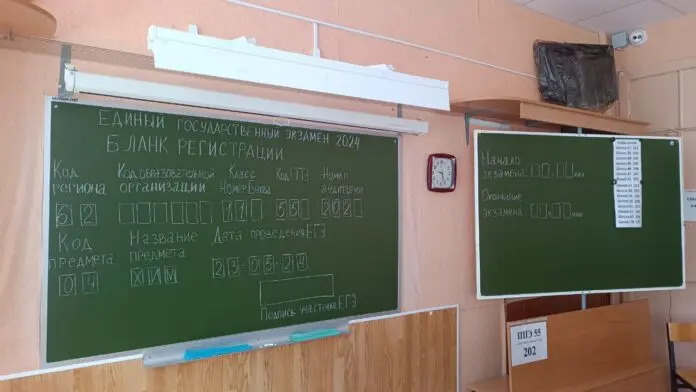 ЕДИНЫЙ ГОСУДАРСТВЕННЫЙ ЭКЗАМЕН 2024
БЛАНК РЕГИСТРАЦИИ
Код региона
Код образовательной организации
Класс
Номер Буква
Код ППЭ
Номер аудитории
62
11
55
202
Код предмета
Название предмета
Дата проведения ЕГЭ
04
ХИМ
23-05-24
Подпись участника ЕГЭ
Начало
экзамена
мин
Окончание
экзамена
мин
ППЭ 55
202